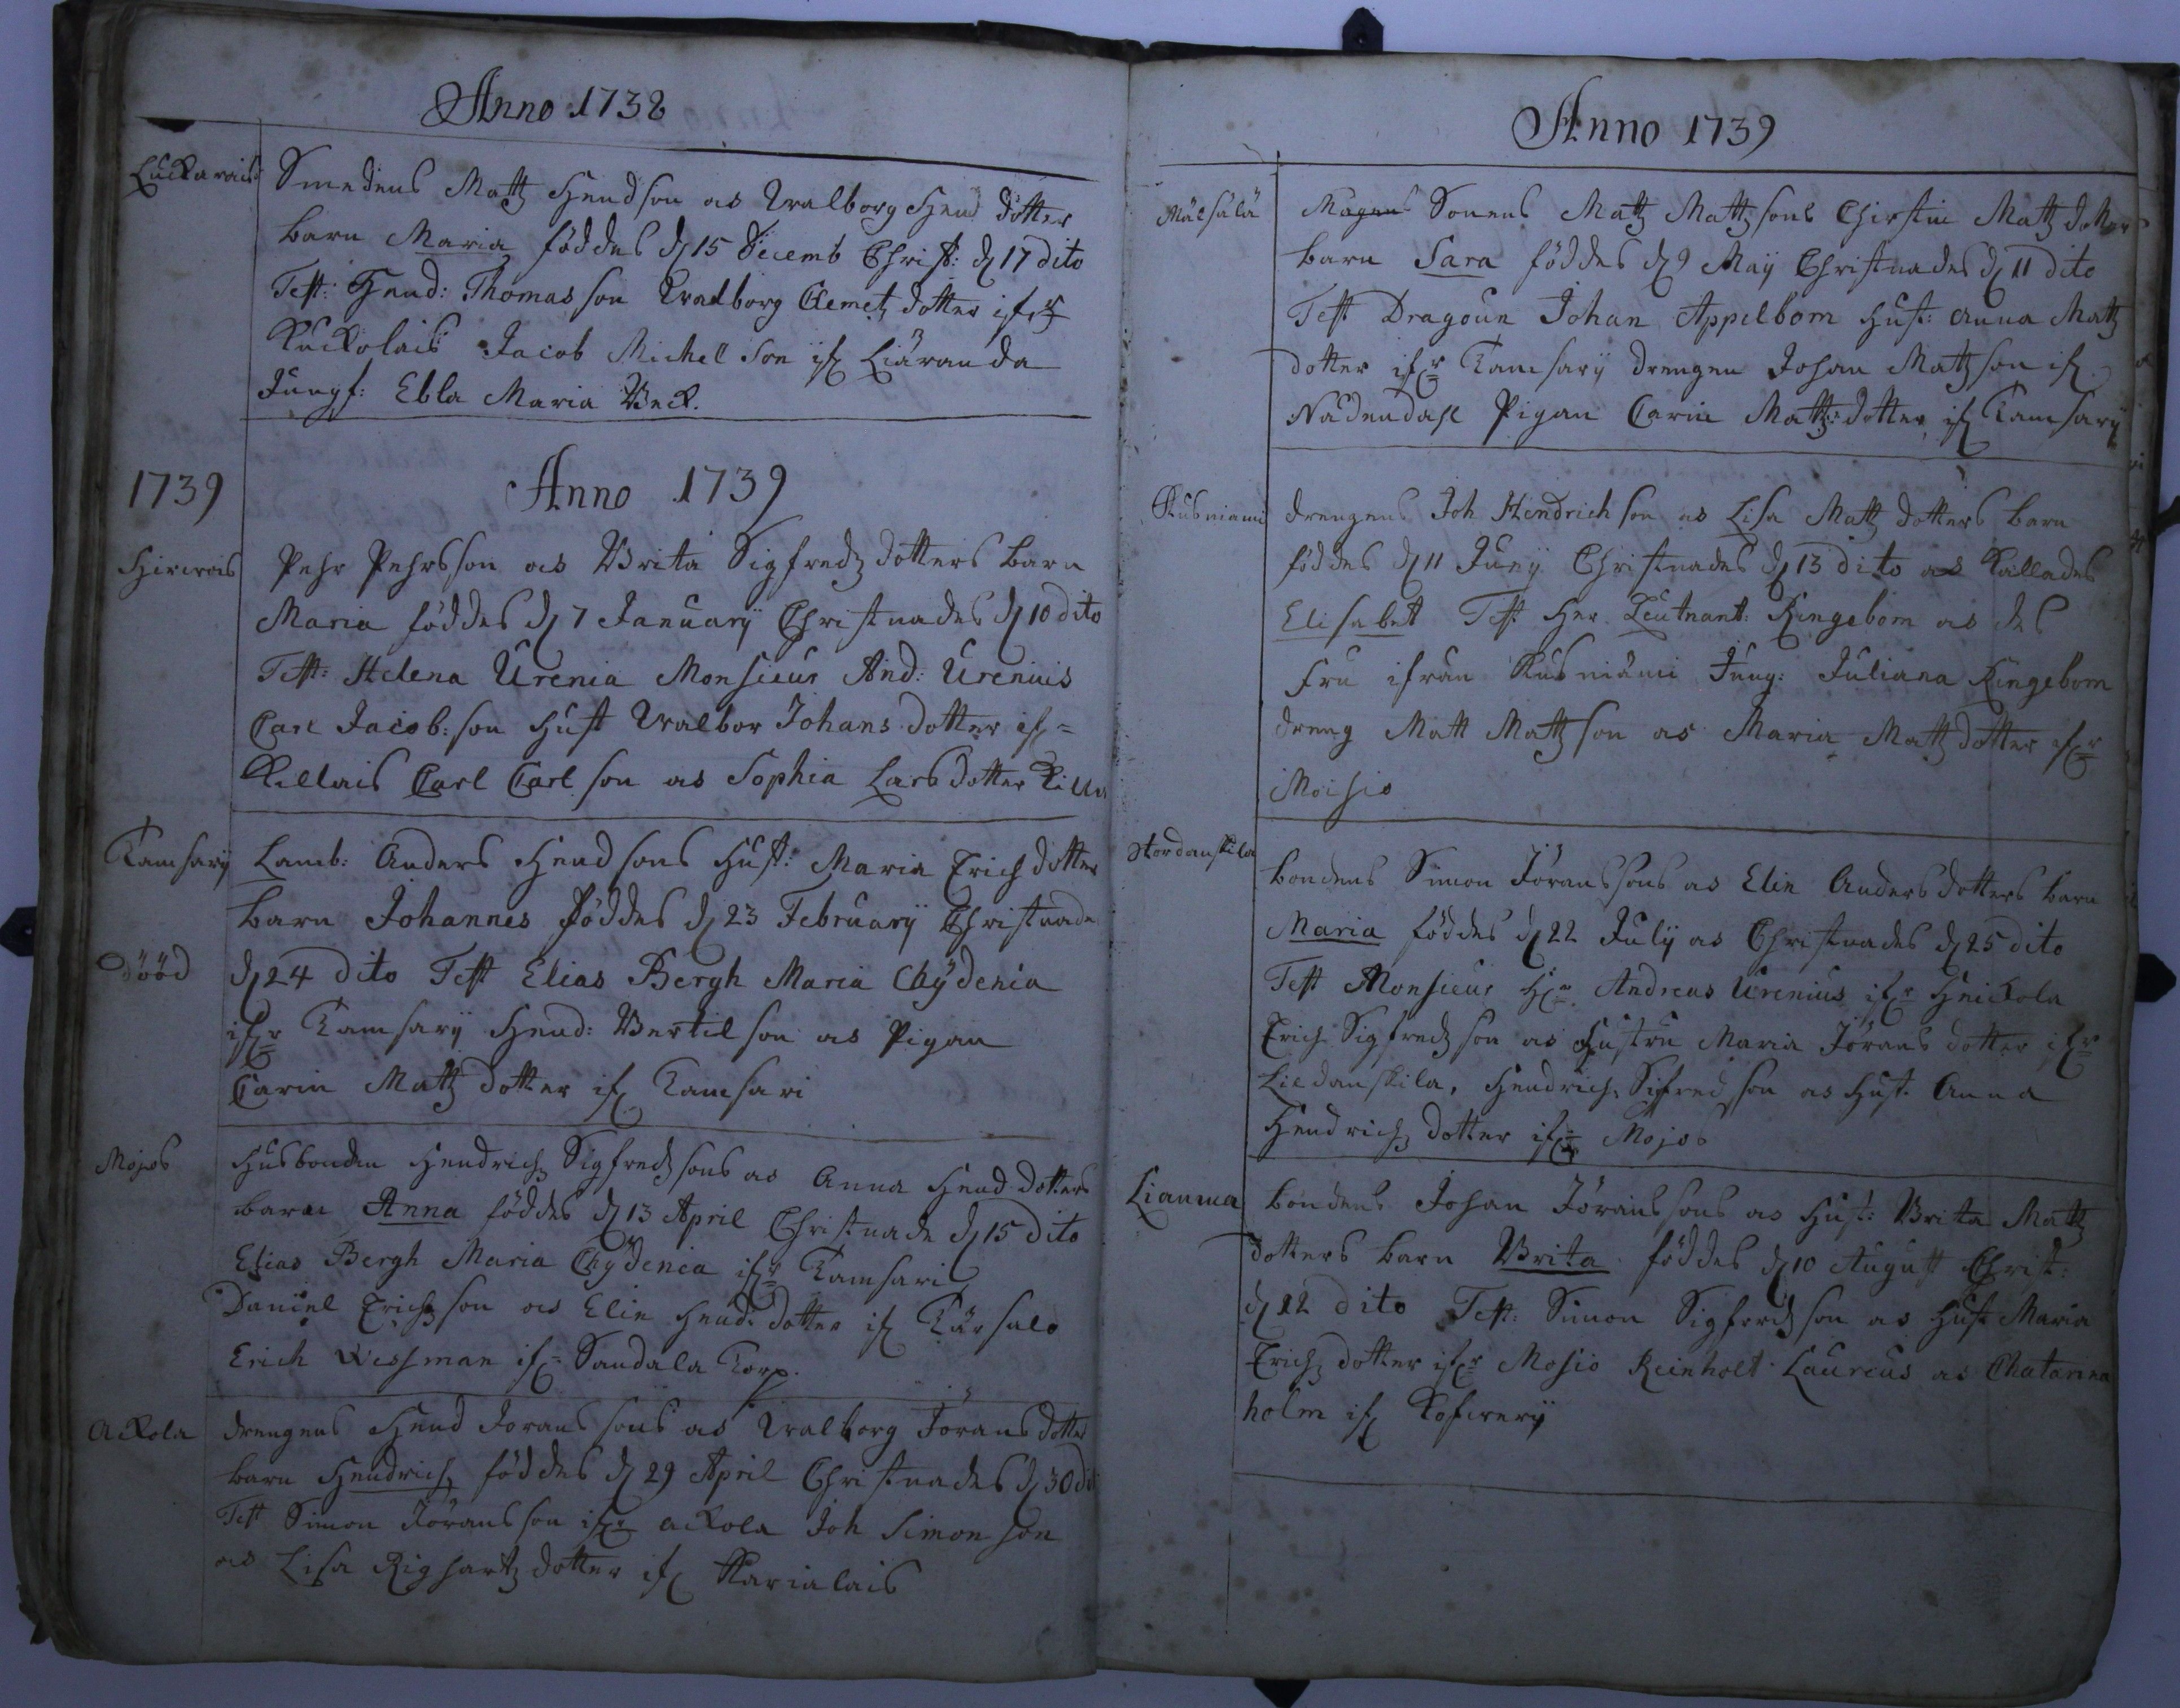 Anno 1738
Luckarais
Smedens Mattz Hendson as Walborg Hend dotter
barn Maria föddes d 15 Decemb Christ: d 17 dito
Test: Hend: Thomasson Walborg Clemetz dotter ifr
Kuckolais Jacob Michel Son if Liäranda
Jungf: Ebla Maria Beck.
1739
Anno 1739
Hirwois
Pehr Pehrsson as Brita Sigfredz dotters barn
Maria föddes d 7 January Christnades d 10 dito
Test: Helena Urenia Monsieur And: Urenius
Carl Jacob:son Hust Walbor Johans dotter if
Killais Carl Carlson as Sophia Lars dotter
Tamsary
Lamb: Anders Hendsons Hust: Maria Erich dotter
barn Johannes föddes d 23 February Christnade
Dööd
d 24 dito Test Elias Bergh Maria Chydenia
ifr Tamsary Hend: Bertilson as Pigan
Carin Mattz dotter if Tamsari
Mojos
Husbonden Hendrich Sigfredsons as Anna Hend dotters
barn Anna föddes d 13 April Christnade d 15 dito
Elias Bergh Maria Chydenia ifr Tamsari
Daniel Erichson as Elin Hend: dotter if Kärsalo
Erich Wessman if Sandala Torp.
Ackola
drengens Hend Joransons as Walborg Jörans dotter
barn Hendrich föddes d 29 April Christnades d 30 di
Test Simon Jöransson ifr Ackola Joh Simonson
as Lisa Righartz dotter if Karialais
Anno 1739
Mälsälä
Mågens Sonens Mattz Mattzsons Chirstin Mattz dotters
barn Sara föddes d 9 May Christnades d 11 dito
Test Dragoun Johan Appelbom Hust: Anna Mattz
dotter ifr Tamsary drengen Johan Mattzson if
Nådendahl Pigan Carin Mattz:dotter if Tamsary
Kusniami
drengens Joh Hendrichson as Lisa Mattz dotters barn
föddes d 11 Juny Christnades d 13 dito as Kallades
Elisabet Test Her Leutnant: Ringebom as des
Fru ifrån Kusniämi Jung: Juliana Ringebom
dreng Matt Mattzson as Maria Mattz dotter ifr
Moisio
Stordanskila
bondens Simon Jöranssons as Elin Anders dotters barn
Maria föddes d 22 July as Christnades d 25 dito
Test Monsieur Hr Andreas Urenius ifr Heickola
Erich Sigfredson as Hustru Maria Jörans dotter ifr
Lildanskila, Hendrich Sifredson as Hust. Anna
Hendrichz dotter ifr Mojos
Lianma
bondens Johan Jöranssons as Hust: Brita Mattz
dotters barn Brita föddes d 10 August Christ:
d 12 dito Test: Simon Sigfredson as Hust Maria
Erichz dotter ifr Mosio Reinholt Laureus as Chatarina
holm if Kofwery